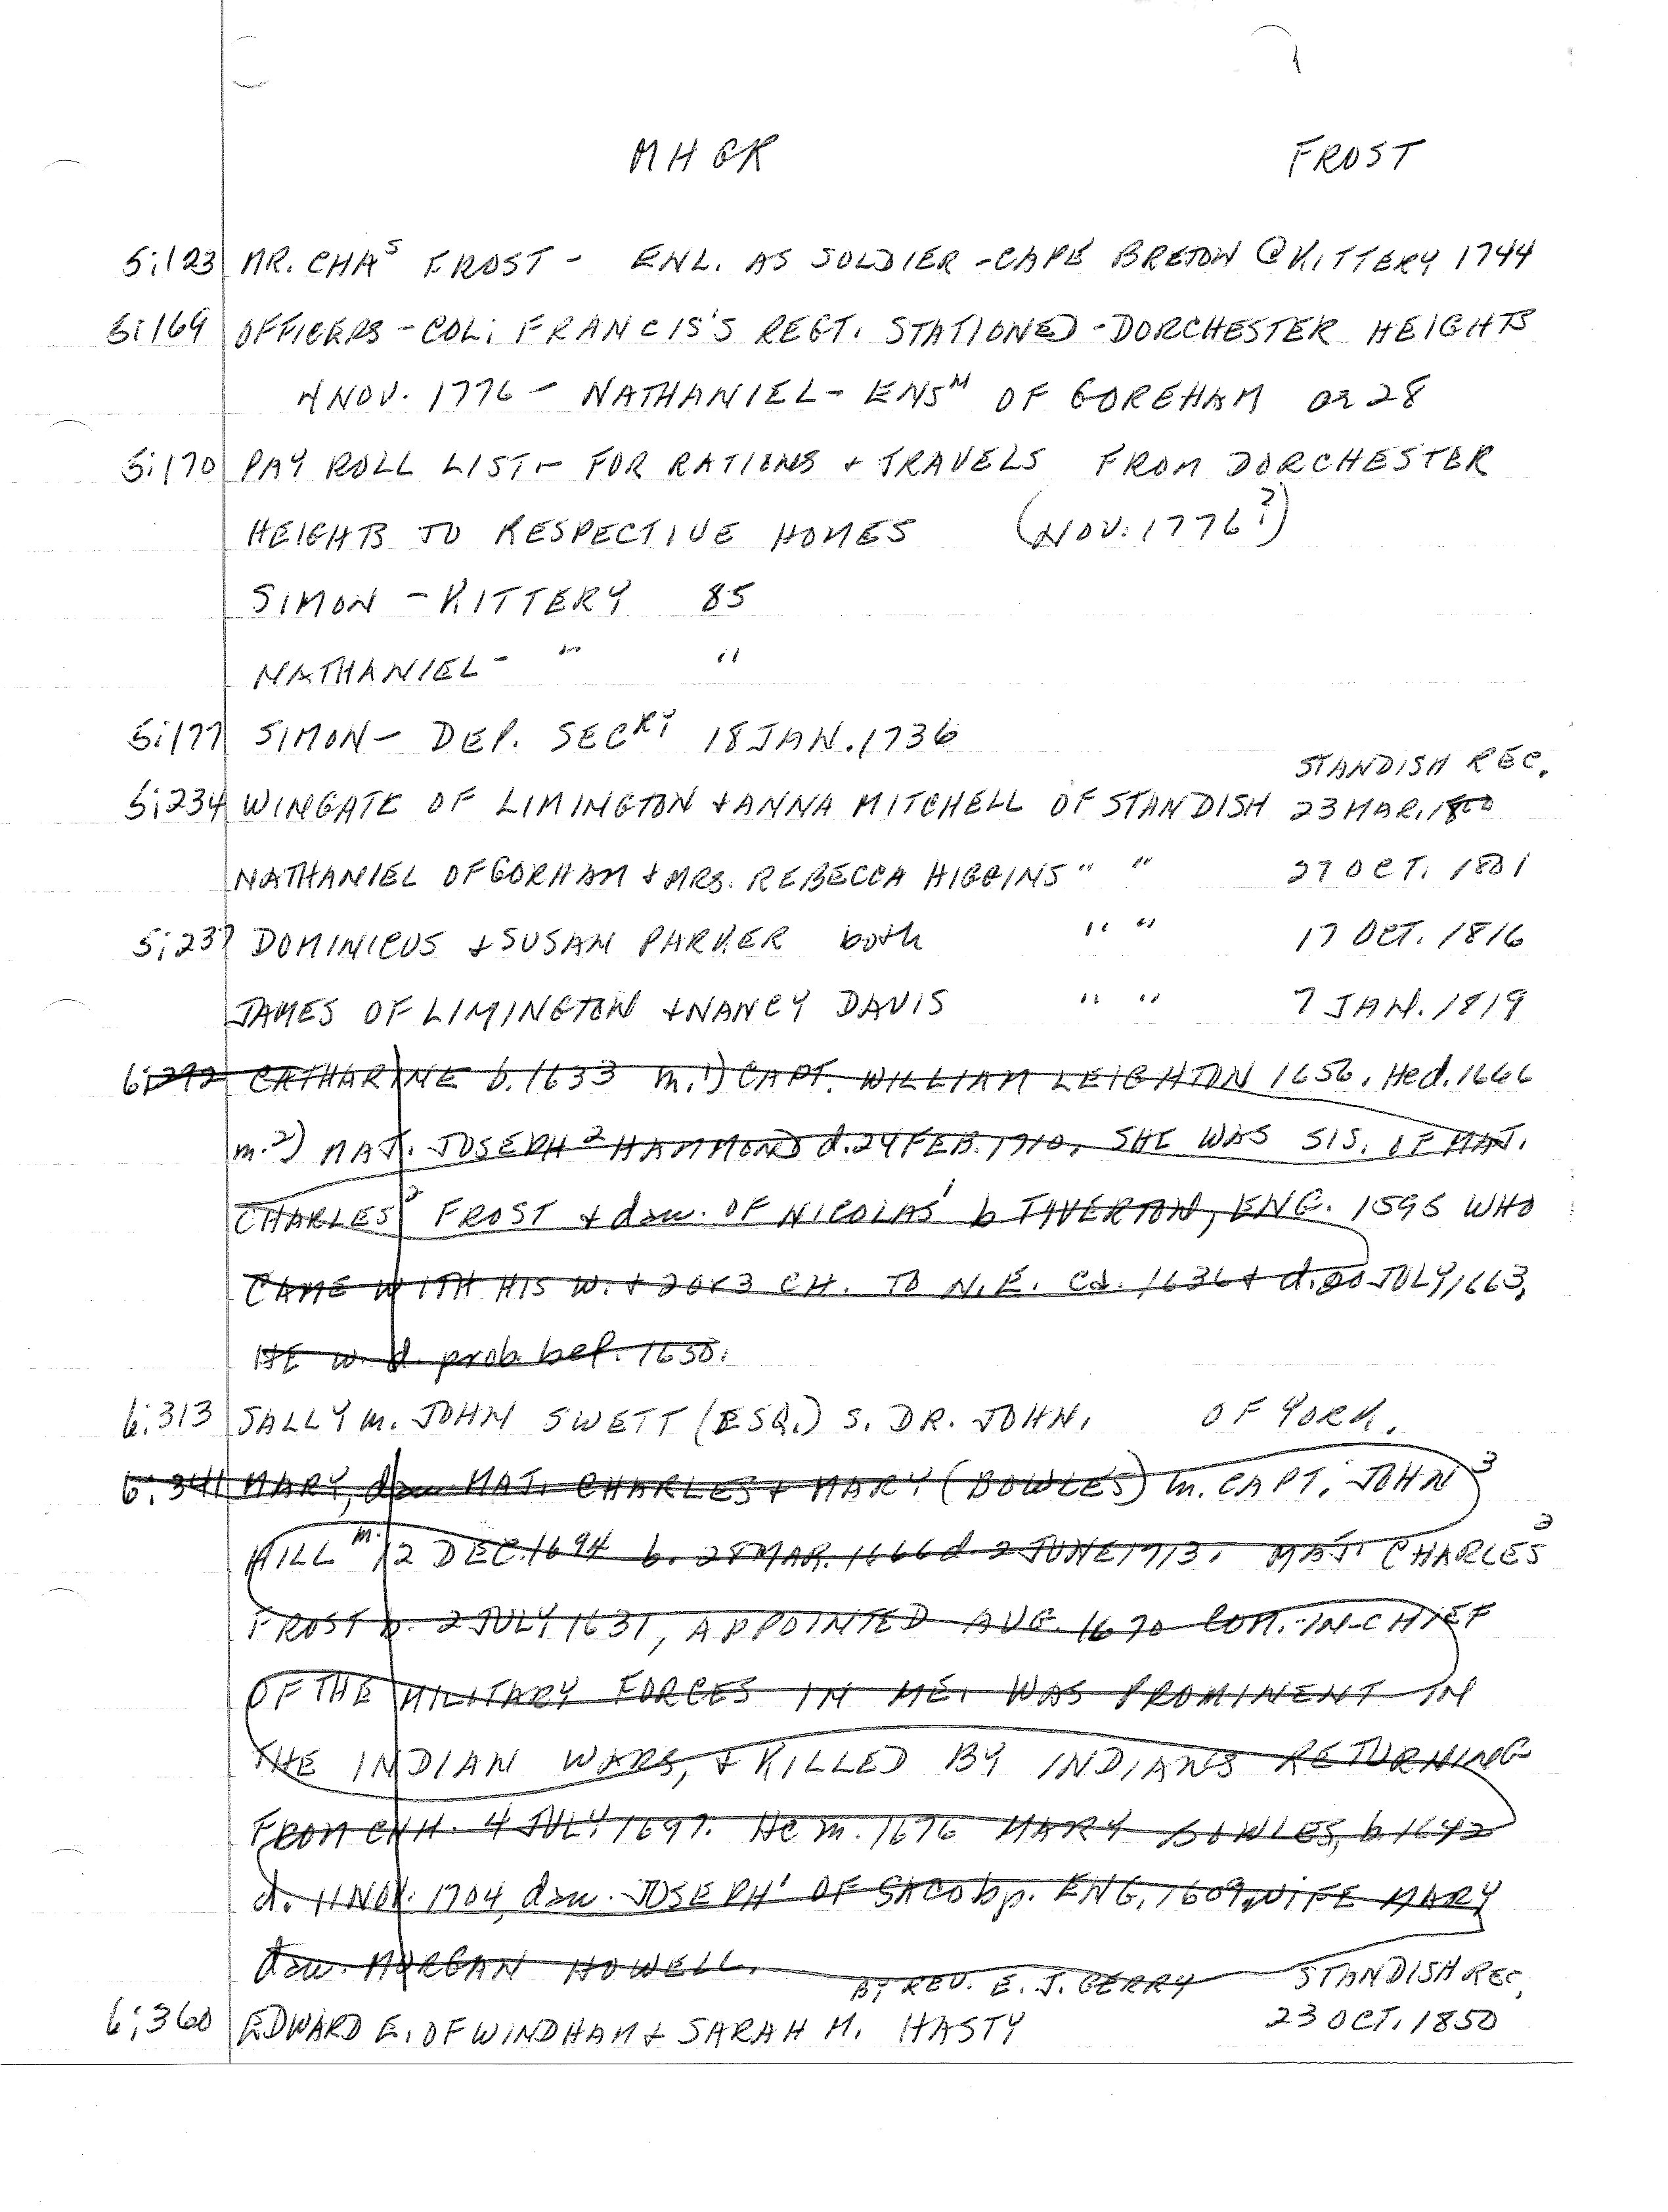 1
MHGR FROST
5:123 MR. CHAS FROST - ENL. AS SOLDIER - CAPE BRETON @ KITTERY 1744
5:169 OFFICERS - COL. FRANCIS'S REGT. STATIONED - DORCHESTER HEIGHTS
4 NOV. 1776 - NATHANIEL - ENSM OF GOREHAM or 28
5:170 PAY ROLL LIST - FOR RATIONS + TRAVELS FROM DORCHESTER
HEIGHTS TO RESPECTIVE HOMES (NOV. 1776?)
SIMON - KITTERY 85
NATHANIEL - " "
5:177 SIMON - DEP. SECRY 18 JAN. 1736
STANDISH REC.
5:234 WINGATE OF LIMINGTON + ANNA MITCHELL OF STANDISH 23 MAR. 1800
NATHANIEL OF GORHAM + MRS. REBECCA HIGGINS " " 27 OCT. 1801
5:237 DOMINICUS + SUSAN PARKER both " " 17 OCT. 1816
JAMES OF LIMINGTON + NANCY DAVIS " " 7 JAN. 1819
6:292 CATHARINE b. 1633 m. 1) CAPT. WILLIAM LEIGHTON 1656. He d. 1666
m. 2) MAJ. JOSEPH2 HAMMOND d. 24 FEB. 1710. SHE WAS SIS. OF MAJ.
CHARLES2 FROST + dau. OF NICOLAS1 b TIVERTON, ENG. 1595 WHO
CAME WITH HIS W. + 2 OR 3 CH. TO N.E. ca. 1636 + d. 20 JULY 1663.
HE w. d. prob. bef. 1650.
6:313 SALLY m. JOHN SWETT (ESQ.) S. DR. JOHN. OF YORK.
6:341 MARY, dau MAJ. CHARLES + MARY (BOWLES) m. CAPT. JOHN3
HILL m. 12 DEC. 1694 b. 28 MAR. 1666 d. 2 JUNE 1713. MAJ. CHARLES2
FROST b. 2 JULY 1631, APPOINTED AUG. 1670 COM.-IN-CHIEF
OF THE MILITARY FORCES IN ME. WAS PROMINENT IN
THE INDIAN WARS, + KILLED BY INDIANS RETURNING
FROM CHH. 4 JULY 1697. He m. 1676 MARY BOWLES, b. 1642
d. 11 NOV. 1704, dau. JOSEPH1 OF SACO bp. ENG. 1609, WIFE MARY
dau. MORGAN HOWELL.
BY REV. E. J. GERRY STANDISH REC.
6:360 EDWARD E. OF WINDHAM + SARAH M. HASTY 23 OCT. 1850